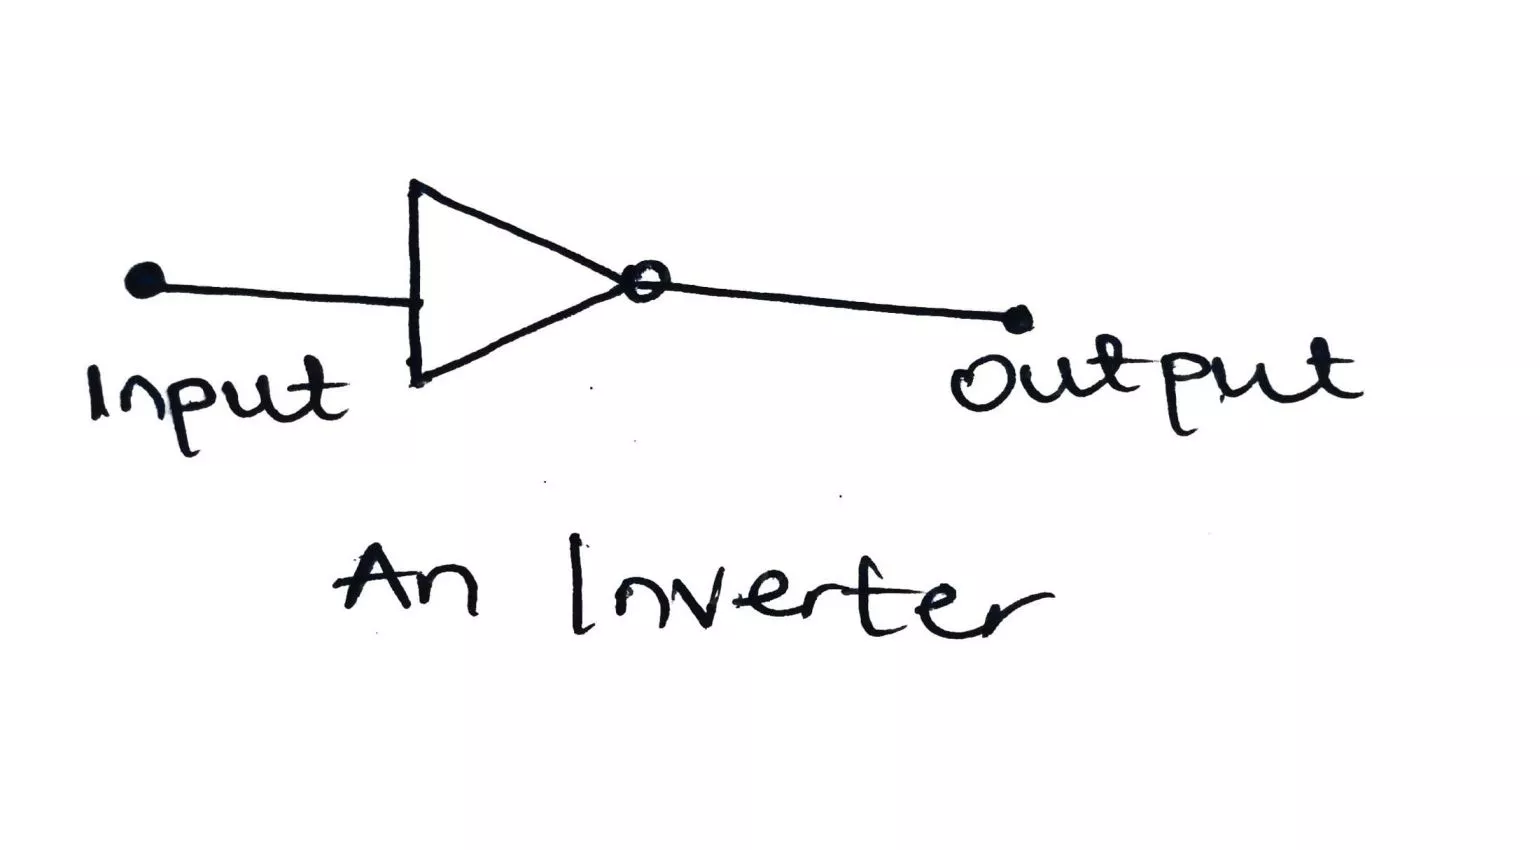 Input
output
An Inverter